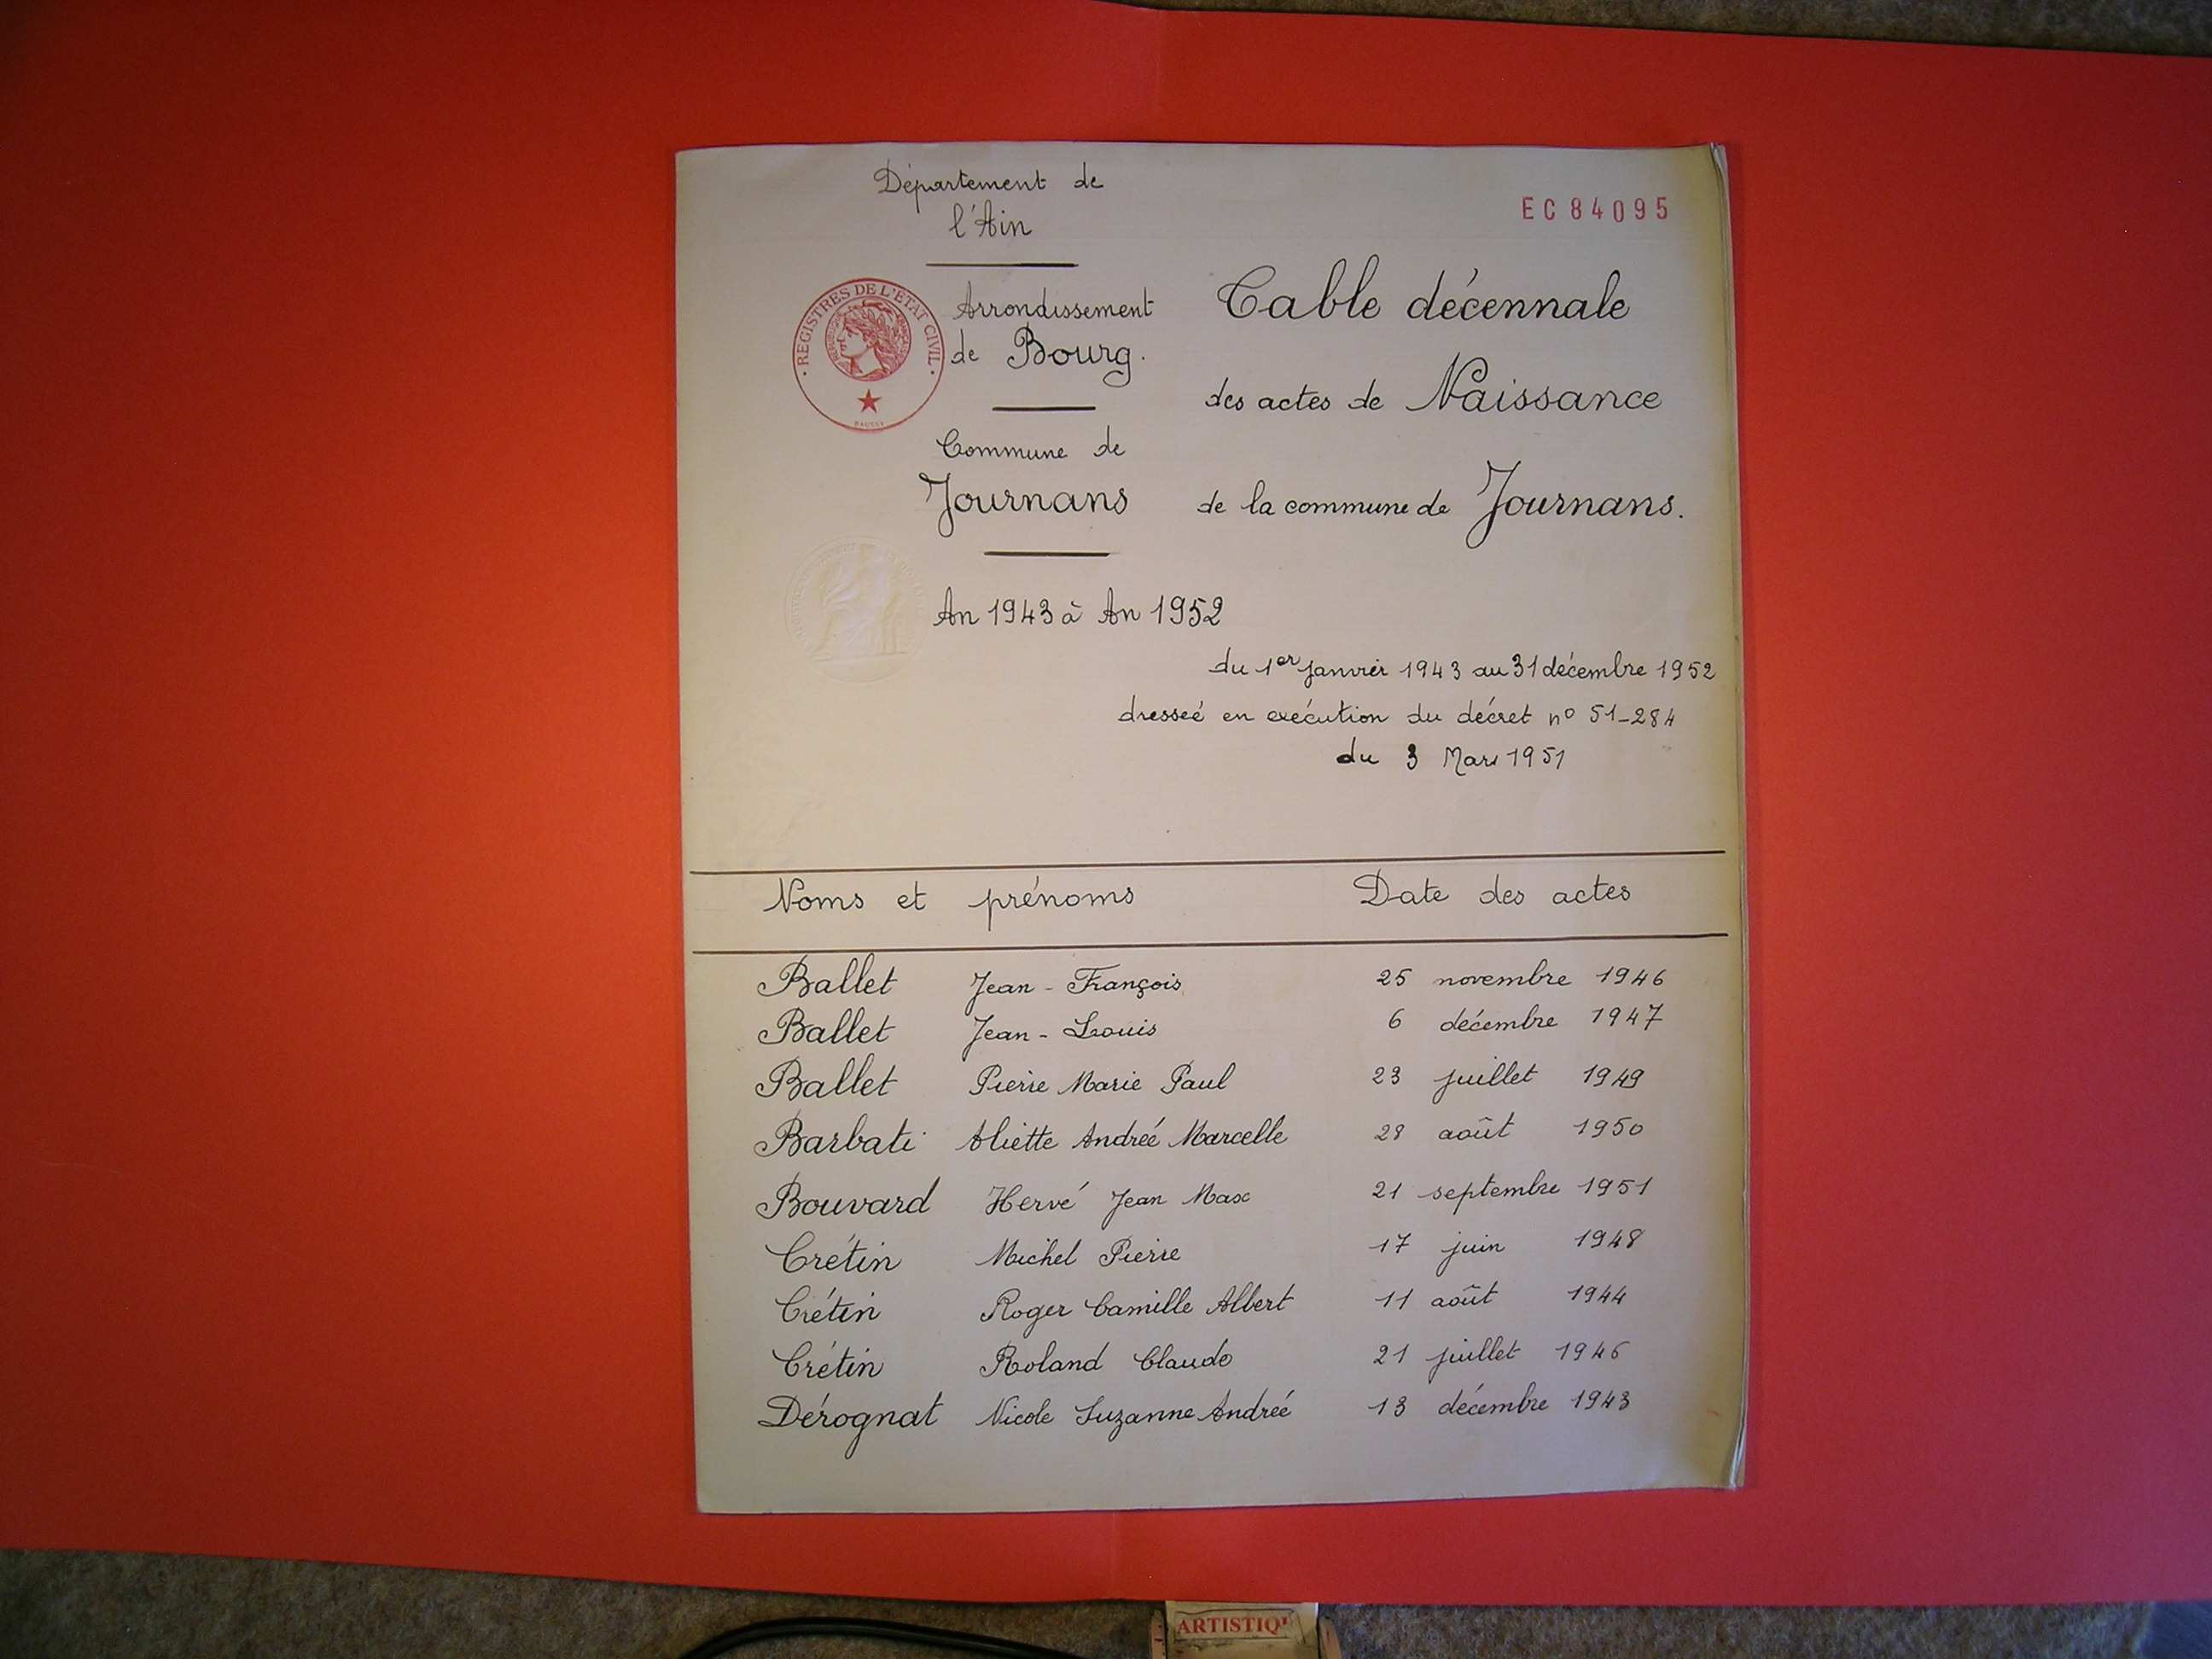 Département de
l'Ain
EC 84095
REGISTRES DE L'ETAT CIVIL
Arrondissement
de Bourg.
Table décennale
des actes de Naissance
Commune de
Journans
de la commune de Journans.
An 1943 à An 1952
du 1er janvier 1943 au 31 décembre 1952
dressée en exécution du décret no 51-284
du 3 Mars 1951
Noms et prénoms Date des actes
Ballet Jean-François 25 novembre 1946
Ballet Jean-Louis 6 décembre 1947
Ballet Pierre Marie Paul 23 juillet 1949
Barbati Aliette Andrée Marcelle 28 août 1950
Bouvard Hervé Jean Max 21 septembre 1951
Crétin Michel Pierre 17 juin 1948
Crétin Roger Camille Albert 11 août 1944
Crétin Roland Claude 21 juillet 1946
Dérognat Nicole Suzanne Andrée 13 décembre 1943
ARTISTIQ